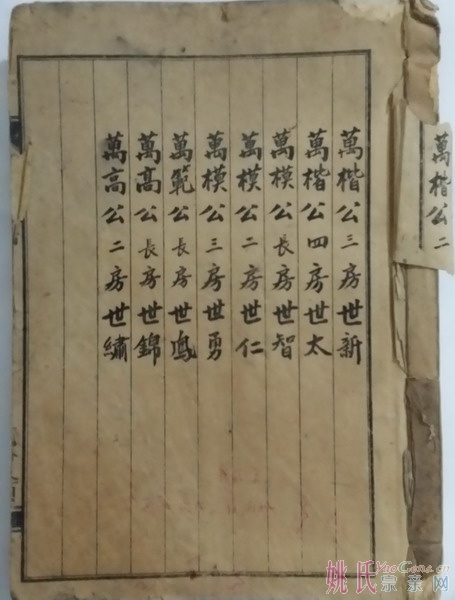 萬楷公二
萬楷公三房世新
萬楷公四房世太
萬模公長房世智
萬模公二房世仁
萬模公三房世勇
萬範公長房世鳳
萬高公長房世錦
萬高公二房世繡
姚氏宗亲网
YaoGens.cn